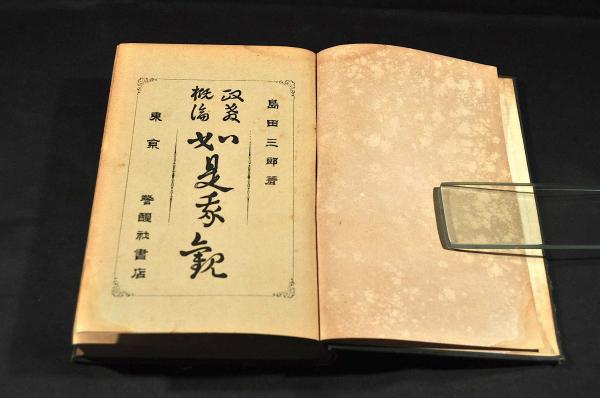 島田三郎著
政教
概論
如是我觀
東京
警醒社書店